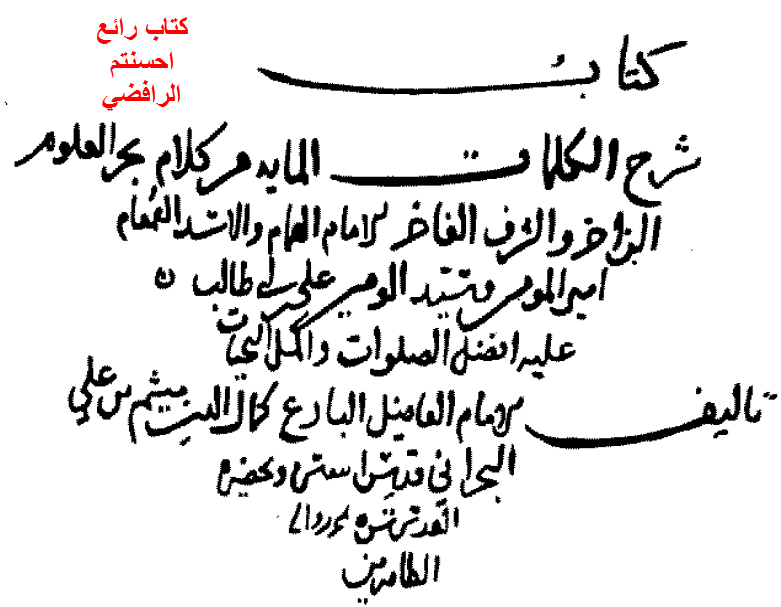 كتاب رائع
احسنتم
الرافضي
كتاب
شرح الكلمات المايه من كلام بحر العلوم
الزاخر والشرف الفاخر الامام الهمام والاسد القمقام
امير المومنين وسيد الوصيين علي بن ابي طالب
عليه افضل الصلوات واكمل التحيات
تاليف الامام الفاضل البارع كمال الدين ميثم بن علي
البحراني قدس الله سره
الطاهرين